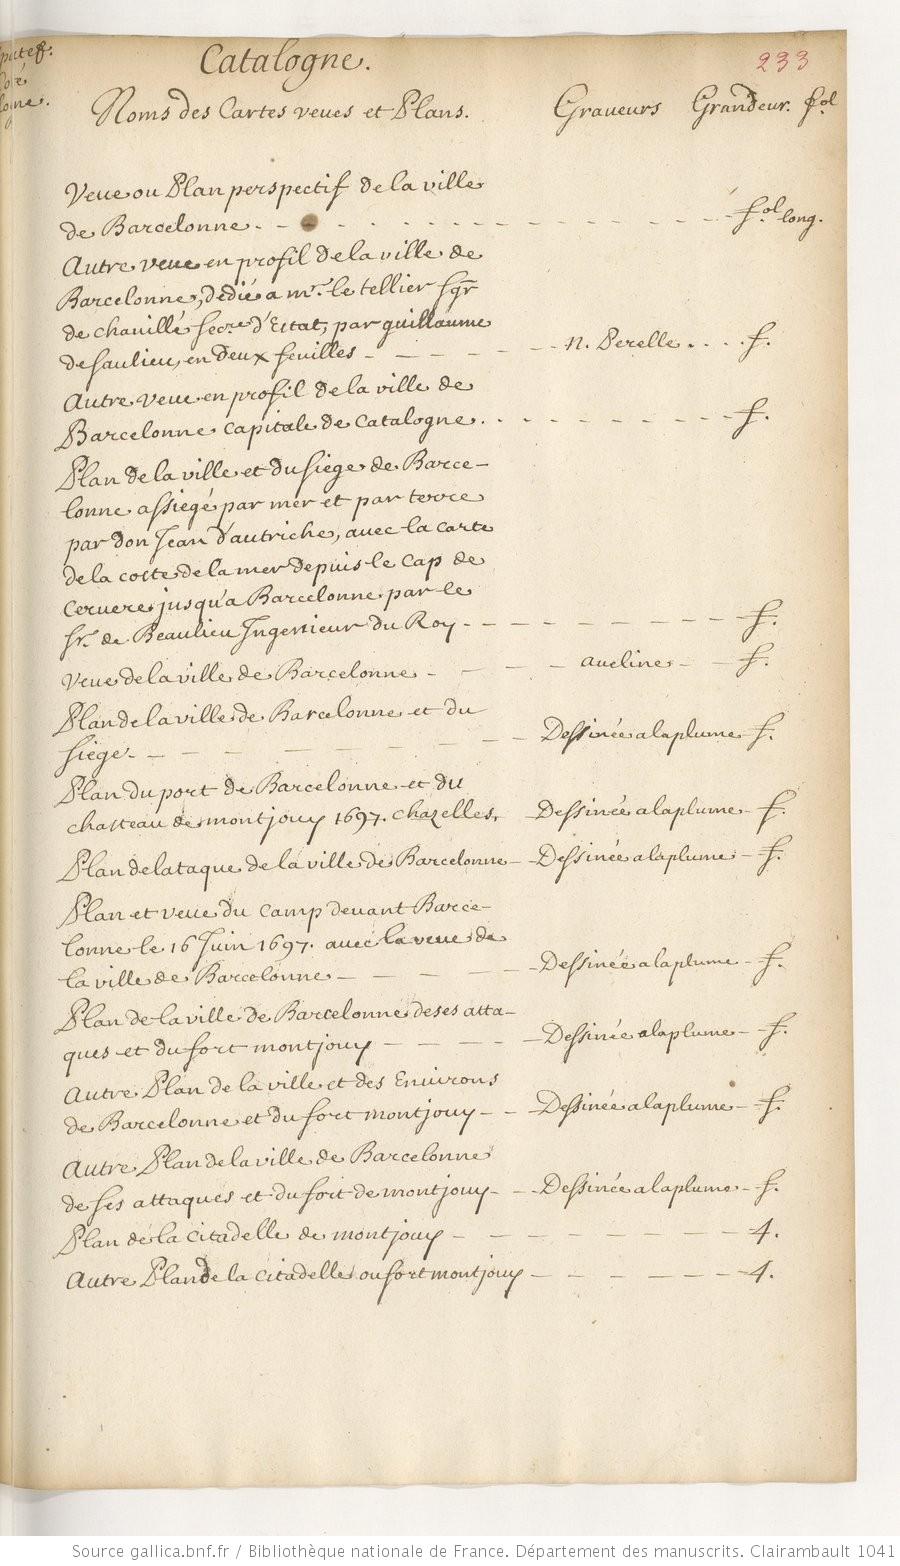 Catalogne.
233
Noms des Cartes veues et Plans. Graveurs Grandeur. fol
Veue ou Plan perspectif de la ville
de Barcelonne - - - - fol long.
Autre veue en profil de la ville de
Barcelonne, dedié a mr. le tellier sgr
de chauillé secre d'Estat, par guillaume
de saulieu, en deux feuilles - - - - n. Perelle . . . . f.
Autre veue en profil de la ville de
Barcelonne capitale de Catalogne . - - - - f.
Plan de la ville et du siege de Barce-
lonne assiegé par mer et par terre
par don Jean d'autriche, avec la carte
de la coste de la mer depuis le Cap de
Cervere jusqu'a Barcelonne par le
sr. de Beaulieu Ingenieur du Roy - - - - f.
Veue de la ville de Barcelonne - - - - aveline - - f.
Plan de la ville de Barcelonne et du
siege - - - - Dessinée a la plume f.
Plan du port de Barcelonne et du
chasteau de montjouy 1697. chazelles, - Dessinée a la plume - f.
Plan de lataque de la ville de Barcelonne - Dessinée a la plume - f.
Plan et veue du camp devant Barce-
lonne le 16 Juin 1697. avec la veue de
la ville de Barcelonne - - - - Dessinée a la plume - f.
Plan de la ville de Barcelonne de ses atta-
ques et du fort montjouy - - - - Dessinée a la plume - f.
Autre Plan de la ville et des Environs
de Barcelonne et du fort montjouy - - Dessinée a la plume - f.
Autre Plan de la ville de Barcelonne
de ses attaques et du fort de montjouy - - Dessinée a la plume - f.
Plan de la Citadelle de montjouy - - - - 4.
Autre Plan de la Citadelle ou fort montjouy - - - - 4.
Source gallica.bnf.fr / Bibliothèque nationale de France. Département des manuscrits. Clairambault 1041